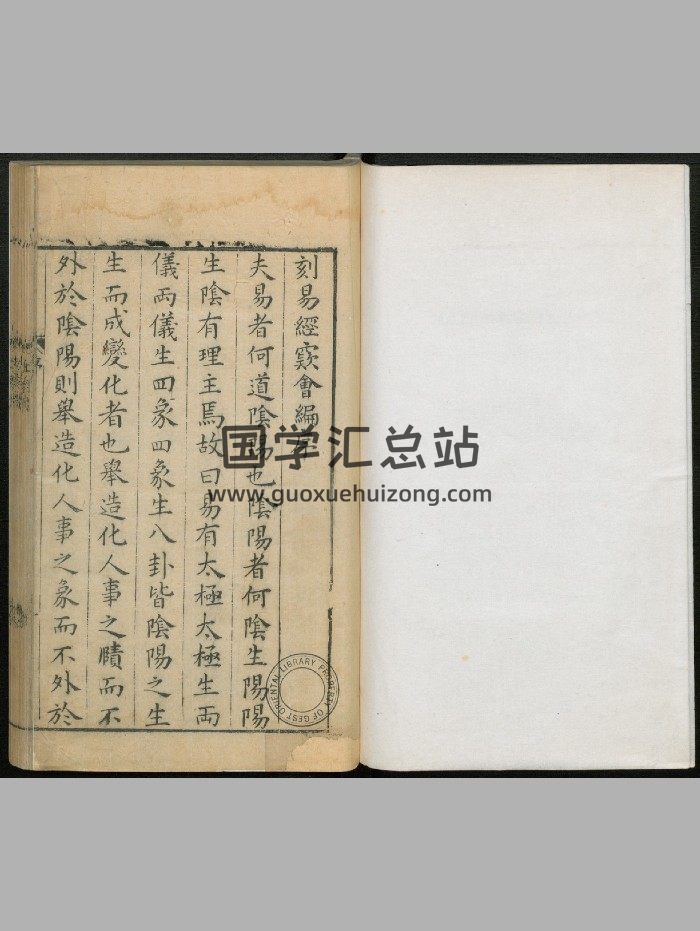 刻易經窽會編序
夫易者何道陰陽也陰陽者何陰生陽陽
生陰有理主焉故曰易有太極太極生兩
儀兩儀生四象四象生八卦皆陰陽之生
生而成變化者也舉造化人事之賾而不
外於陰陽則舉造化人事之象而不外於
国学汇总站
www.guoxuehuizong.com
PROPERTY OF GEST ORIENTAL LIBRARY